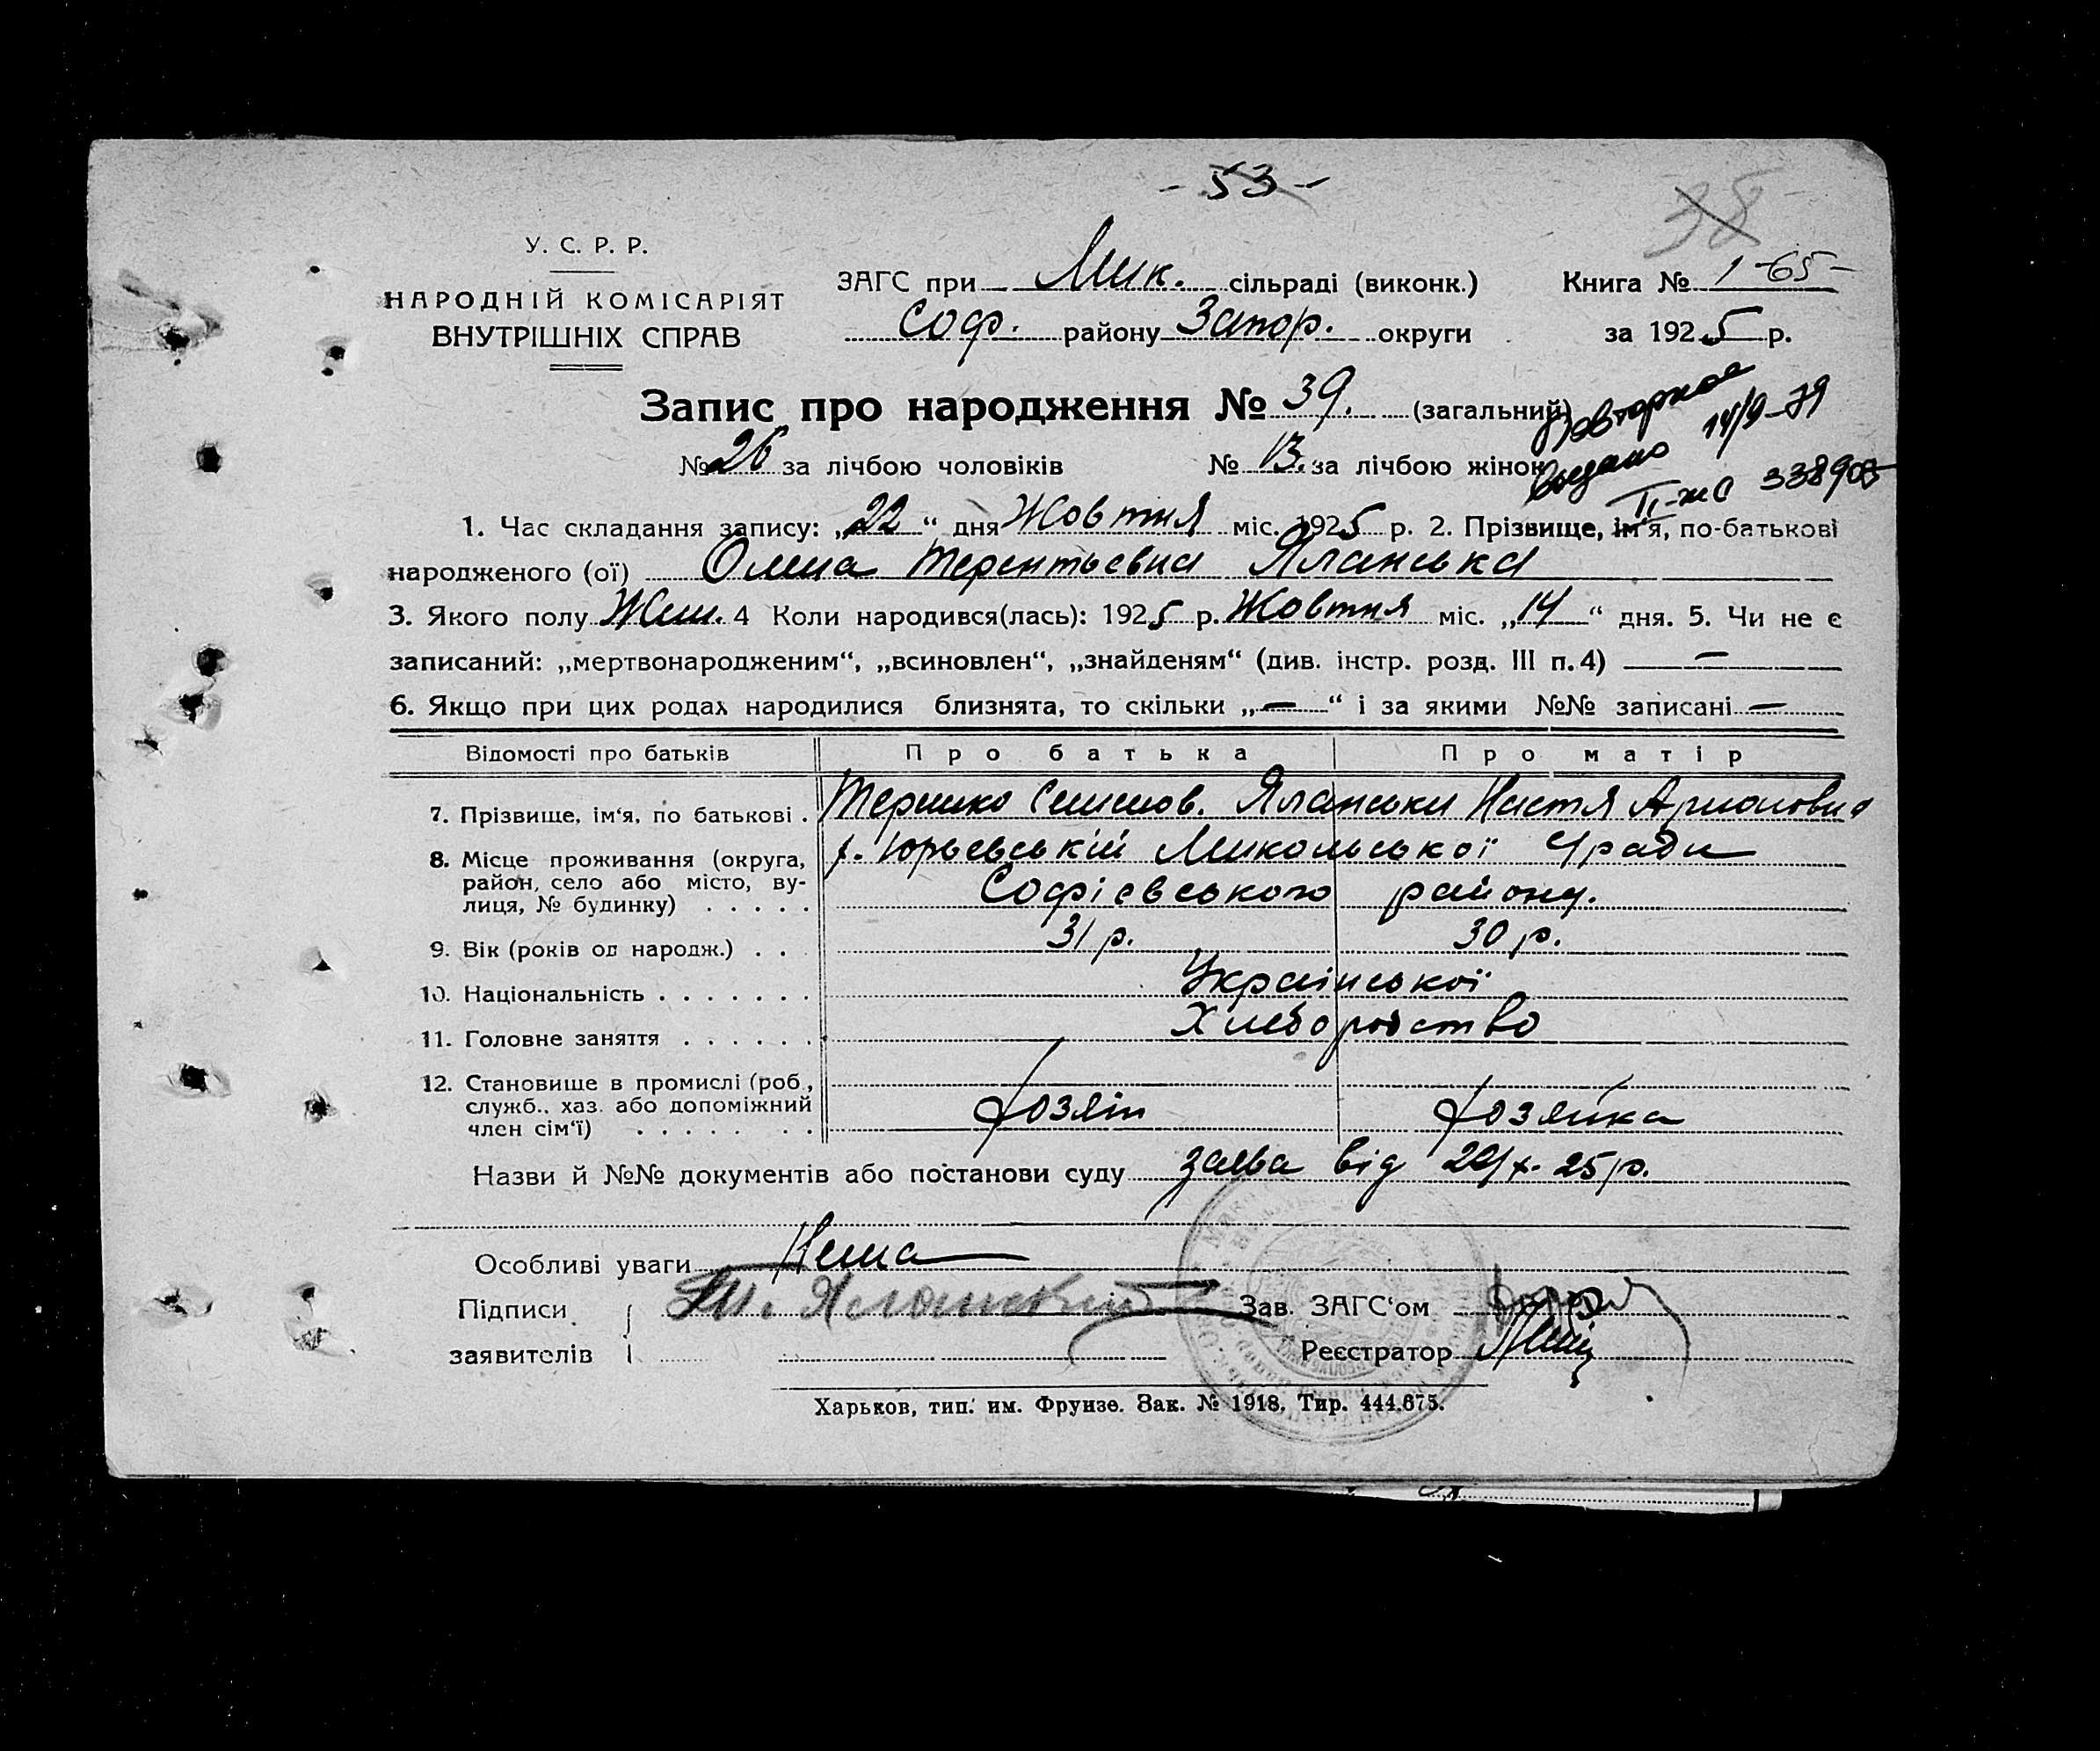 - 53 -
38
У. С. Р. Р.
НАРОДНІЙ КОМІСАРІЯТ
ВНУТРІШНІХ СПРАВ
ЗАГС при Мик. сільраді (виконк.)
Соф. району Запор. округи
Книга № 1 -65-
за 1925 р.
Запис про народження № 39. (загальний)
№ 26 за лічбою чоловіків № 13. за лічбою жінок
Повторное
выдано 14/9-79
II-ЖС 338903
1. Час складання запису: „22“ дня Жовтня міс. 1925 р. 2. Прізвище, ім‘я, по-батькові
народженого (ої) Олена Терентьевна Яланська
3. Якого полу Жен. 4 Коли народився(лась): 1925 р. Жовтня міс. „14“ дня. 5. Чи не є
записаний: „мертвонародженим“, „всиновлен“, „знайденям“ (див. інстр. розд. III п. 4) —
6. Якщо при цих родах народилися близнята, то скільки „—“ і за якими №№ записані —
Відомості про батьків Про батька Про матір
7. Прізвище, ім‘я, по батькові . Яланськи Настя
8. Місце проживання (округа, район, село або місто, вулиця, № будинку) . . . . . Юрьевській Микольської С/ради
Софієвського району.
9. Вік (років од народж.) . . 31 р. 30 р.
10. Національність . . . . . . . Української
11. Головне заняття . . . . . . Хлеборобство
12. Становище в промислі (роб.,
служб., хаз. або допоміжний
член сім‘ї) . . . . . . . Хозяін Хозяйка
Назви й №№ документів або постанови суду заява від 20/X-25 р.
Особливі уваги Нема
Підписи Т. Яланский Зав. ЗАГС‘ом
заявителів Реєстратор
Харьков, тип. им. Фрунзе. Зак. № 1918. Тир. 444.675.